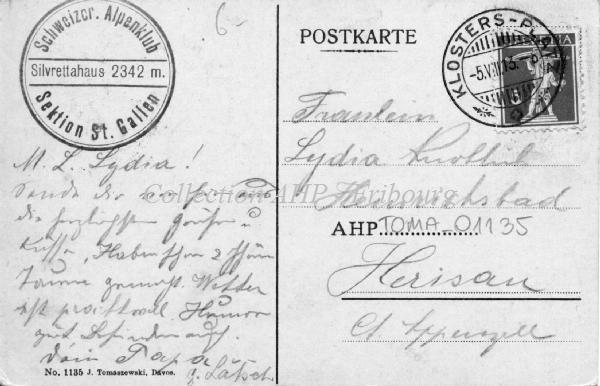 Schweizer. Alpenklub
Silvrettahaus 2342 m.
Sektion St. Gallen
6-
POSTKARTE
KLOSTERS-PLATZ
Fräulein
Lydia
Heinrichsbad
AHP TOMA-01135
Herisau
Ct Appenzell
M. L. Lydia!
Sende dir
die herzlichsten Grüsse u
Küsse, Haben schon 2 schöne
Touren gemacht. Wetter
ist prachtvoll. Humor
gut Befinden auch.
Dein Papa
Collection AHP Fribourg
No. 1135 J. Tomaszewski, Davos.